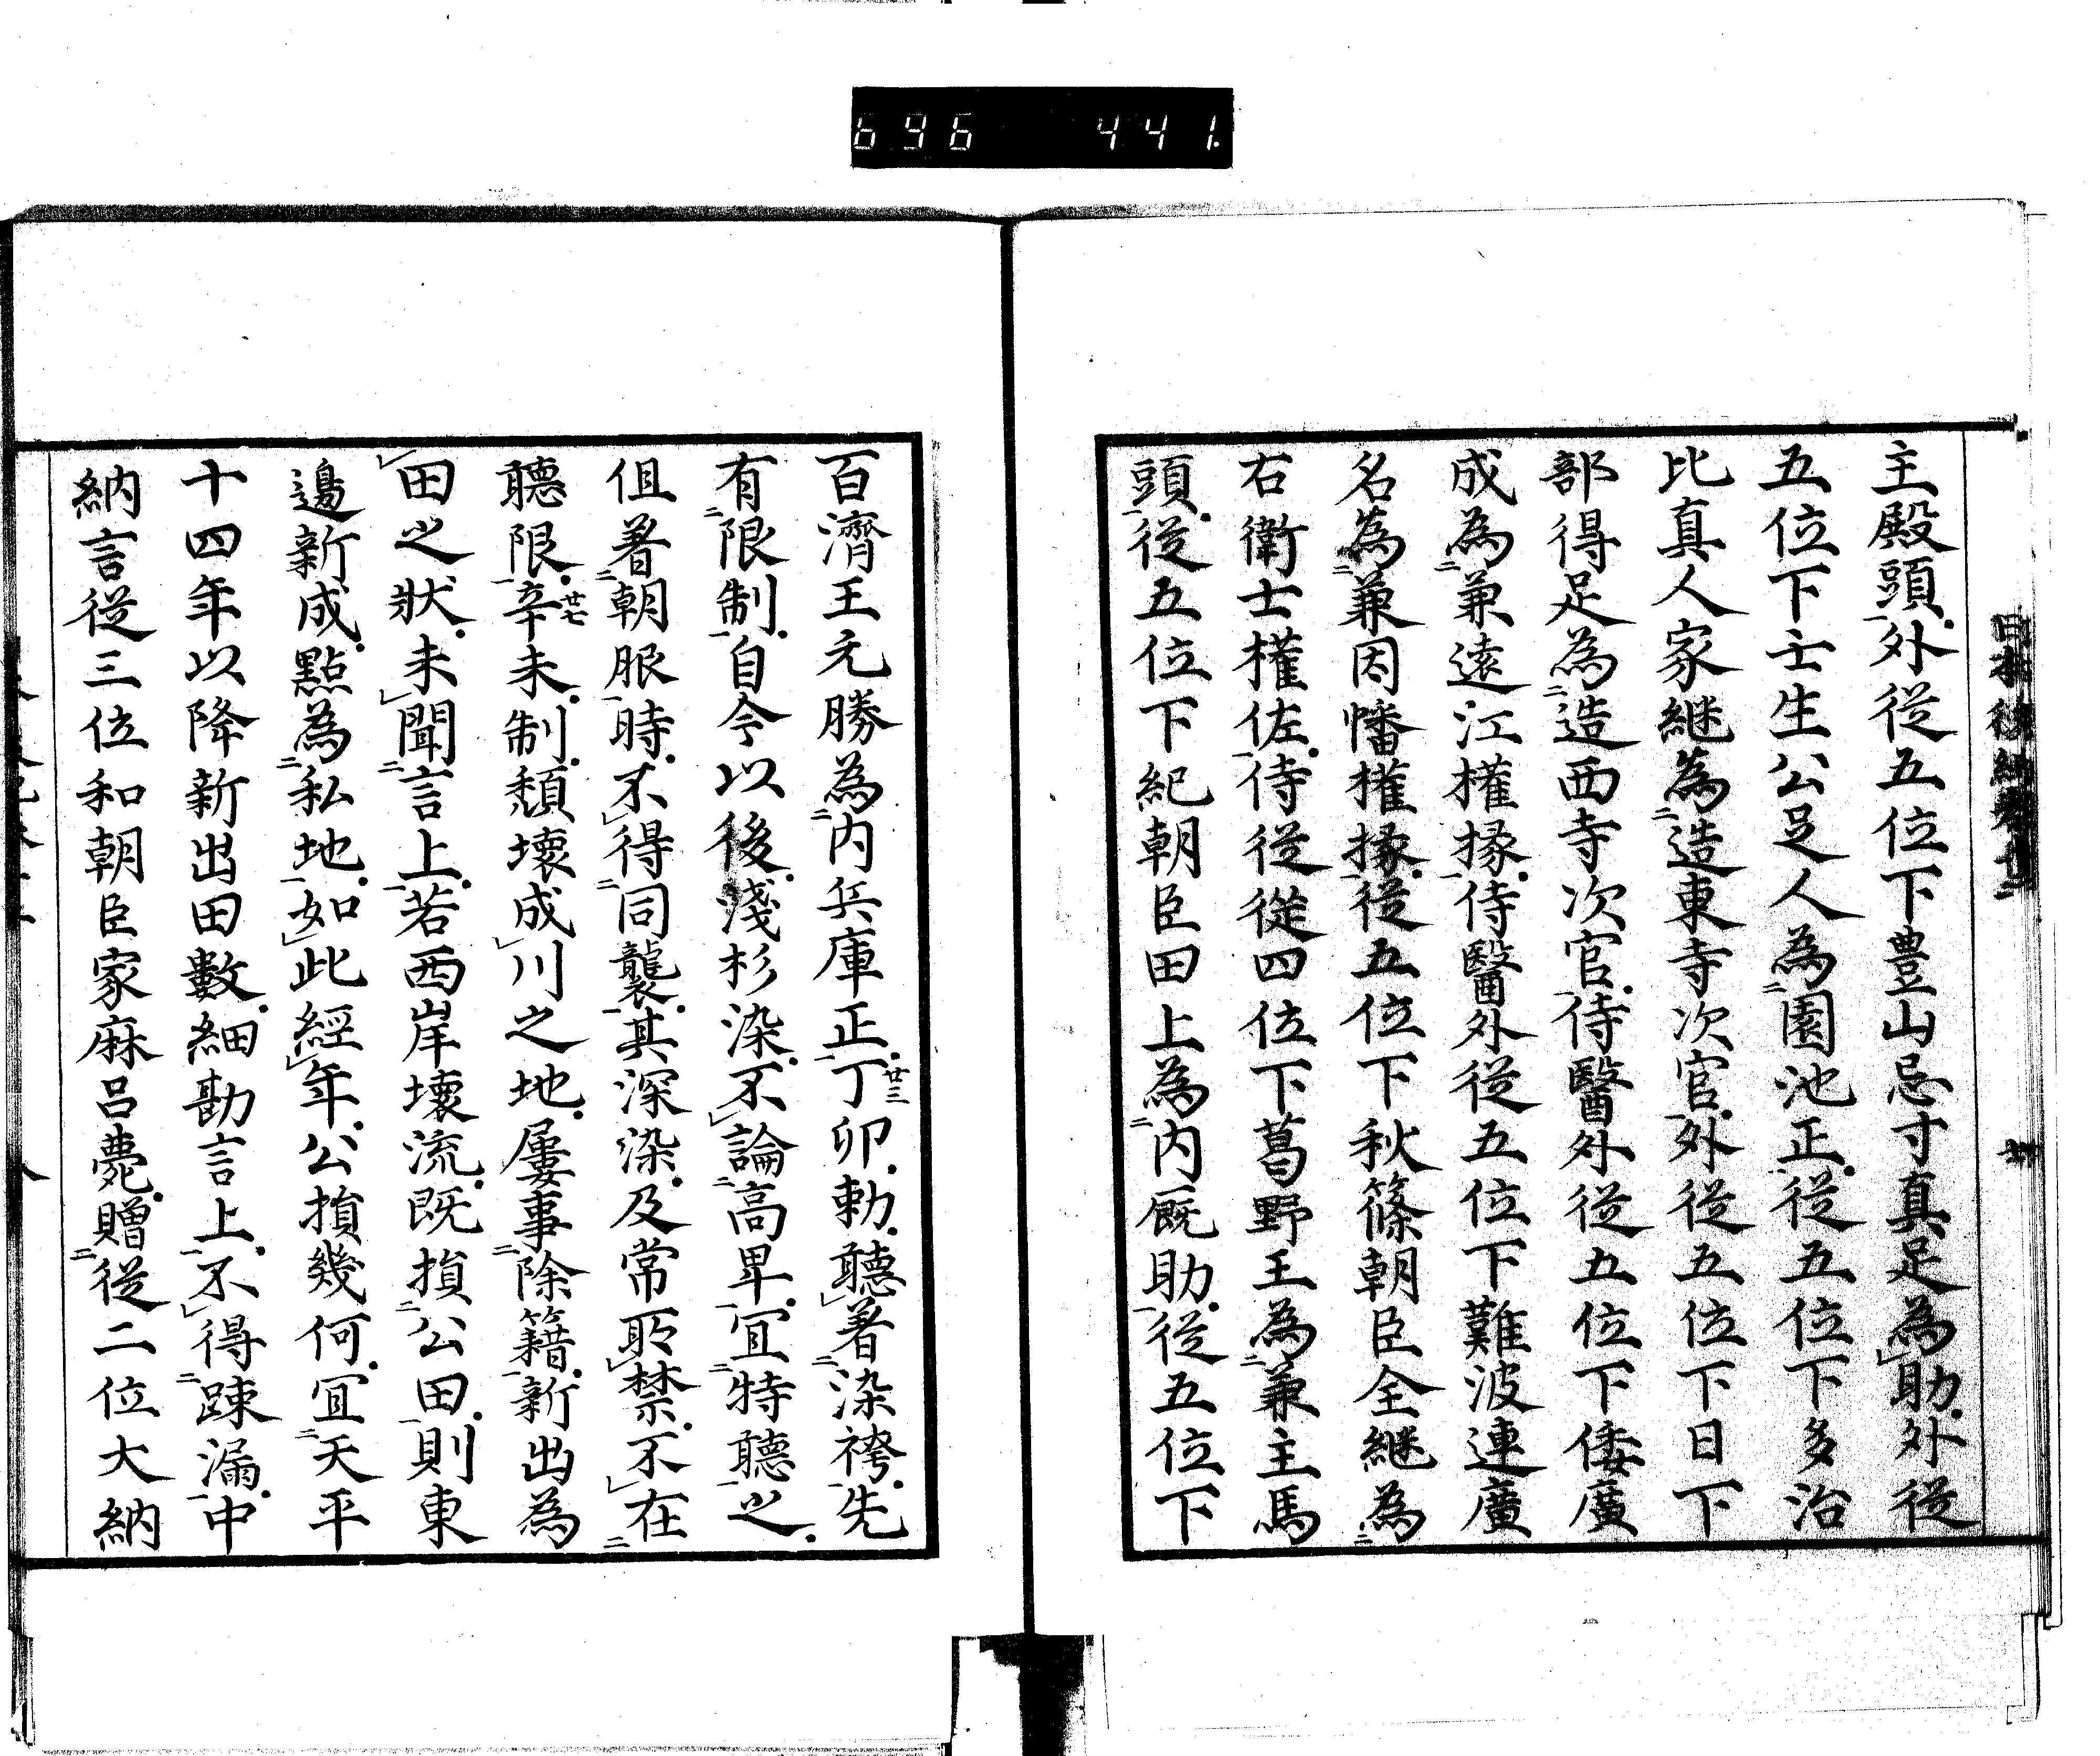 696 441.
主殿頭外從五位下豊山忌寸真足為助外從
五位下壬生公足人為園池正從五位下多治
比真人家継為造東寺次官外從五位下日下
部得足為造西寺次官侍醫外從五位下倭廣
成為兼遠江權掾侍醫外從五位下難波連廣
名為兼因幡權掾從五位下秋篠朝臣全継為
右衛士權佐侍從從四位下葛野王為兼主馬
頭從五位下紀朝臣田上為内厩助從五位下
百濟王元勝為内兵庫正丁卯勅聽著染袴先
廿三
有限制自今以後淺杉染不論高卑宜特聽之
但著朝服時不得同襲其深染及常所禁不在
聽限辛未制頽壞成川之地屢事除籍新出為
廿七
田之狀未聞言上若西岸壞流既損公田則東
邊新成點為私地如此經年公損幾何宜天平
十四年以降新出田數細勘言上不得踈漏中
納言從三位和朝臣家麻呂薨贈從二位大納